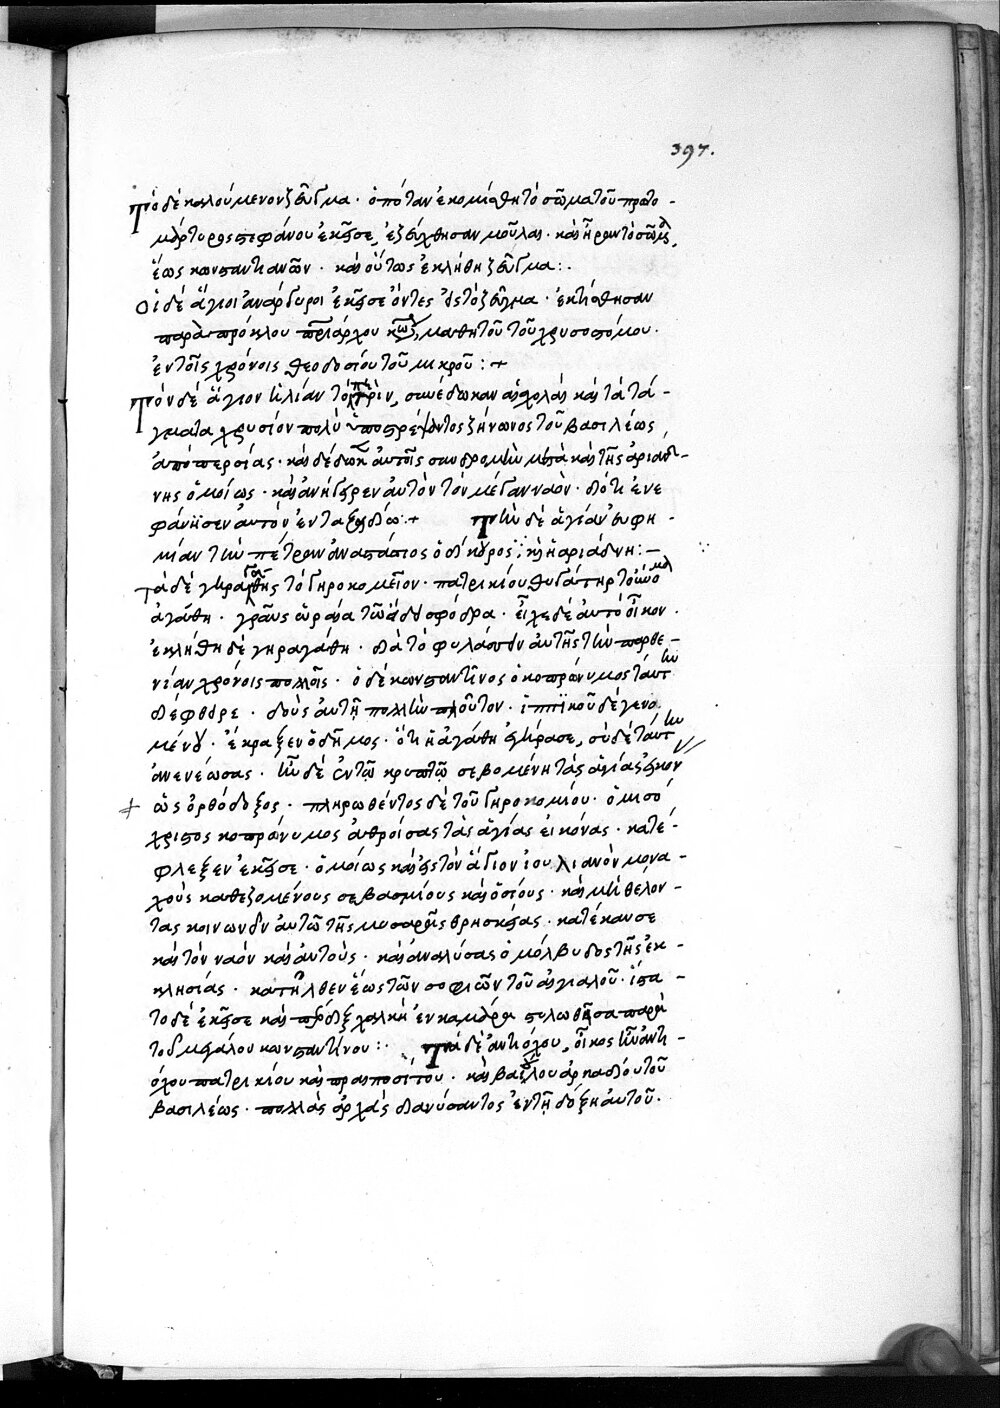 397.
Τὸ δὲ καλούμενον ζεῦγμα· ὁπόταν ἐκομίσθη τὸ σῶμα τοῦ πρωτο-
μάρτυρος στεφάνου ἐκεῖσε, ἐζεύχθησαν μοῦλαι· καὶ ἦραν τὸ σῶμα,
ἕως κωνσταντιανῶν· καὶ οὕτως ἐκλήθη ζεῦγμα:.
οἱ δὲ ἅγιοι ἀνάργυροι ἐκεῖσε ὄντες εἰς τὸ ζεῦγμα· ἐκτίσθησαν
παρὰ πρόκλου πριάρχου κωʹ, μαθητοῦ τοῦ χρυσοστόμου.
ἐν τοῖς χρόνοις θεοδοσίου τοῦ μικροῦ:+
Τὸν δὲ ἅγιον ἠλίαν τὸ πετρὶν, συνέδωκαν αἱ σχολαὶ καὶ τὰ τά-
γματα χρυσίον πολὺ ὑποστρέψαντος ζήνωνος τοῦ βασιλέως
ἀπὸ περσίας· καὶ δέδωκεν αὐτοῖς συνδρομὴν μετὰ καὶ τῆς ἀριάδ-
νης ὁμοίως· καὶ ἀνήγειρεν αὐτὸν τὸν μέγαν ναὸν· διότι ἐνε
φάνησεν αὐτὸν ἐν ταξειδίω:+ Τὴν δὲ ἁγίαν εὐφη-
μίαν τὴν πέτραν ἀναστάσιος ὁ δίκορος, κὴ ἡ ἀριάδνη:-
τὰ δὲ γηραγάθης τὸ γηροκομεῖον· πατρικίου θυγάτηρ τὸ ὄνομα
ἀγάθη· γραῦς ὡραία τῶ εἴδει σφόδρα· εἶχε δὲ αὐτὸ οἶκον.
ἐκλήθη δὲ γηραγάθη· διὰ τὸ φυλάσσειν αὐτῆς τὴν παρθε-
νίαν χρόνοις πολλοῖς· ὁ δὲ κωνσταντῖνος ὁ κοπρώνυμος ταύτην
διέφθειρε· δοὺς αὐτῇ πολλὴν πλοῦτον· ἱππικοῦ δὲ γενο
μένου· ἔκραξεν ὁ δῆμος· ὅτι ἡ ἀγάθη ἐγήρασε, σὺ δὲ ταύτην
ἀνενέωσας· ἦν δὲ ἐν τῶ κρυπτῶ σεβομένη τὰς ἁγίας εἰκον
ὡς ὀρθόδοξος· πληρωθέντος δὲ τοῦ γηροκομίου· ὁ μισό
χριστος κοπρώνυμος ἀθροίσας τὰς ἁγίας εἰκόνας· κατέ-
φλεξεν ἐκεῖσε· ὁμοίως καὶ εἰς τὸν ἅγιον ἰουλιανὸν μονα-
χοὺς καθεζομένους σεβασμίους καὶ ὁσίους· καὶ μὴ θέλον-
τας κοινωνεῖν αὐτῶ τῆς μυσαρᾶς θρησκείας· κατέκαυσε
καὶ τὸν ναὸν καὶ αὐτοὺς· καὶ ἀναλύσας ὁ μόλυβδος τῆς ἐκ-
κλησίας· κατῆλθεν ἕως τῶν σοφιῶν τοῦ αἰγιαλοῦ· ἵστα-
το δὲ ἐκεῖσε καὶ χαλκῆ ἐν καμάρα στυλωθεῖσα παρὰ
τοῦ μεγάλου κωνσταντίνου:. Τὰ δὲ ἀντιόχου, οἶκος ἦν ἀντι-
όχου πατρικίου καὶ πραιποσίτου· καὶ βαΐλου ἀρκαδίου τοῦ
βασιλέως· πολλὰς ἀρχὰς διανύσαντος ἐν τῇ δόξῃ αὐτοῦ.